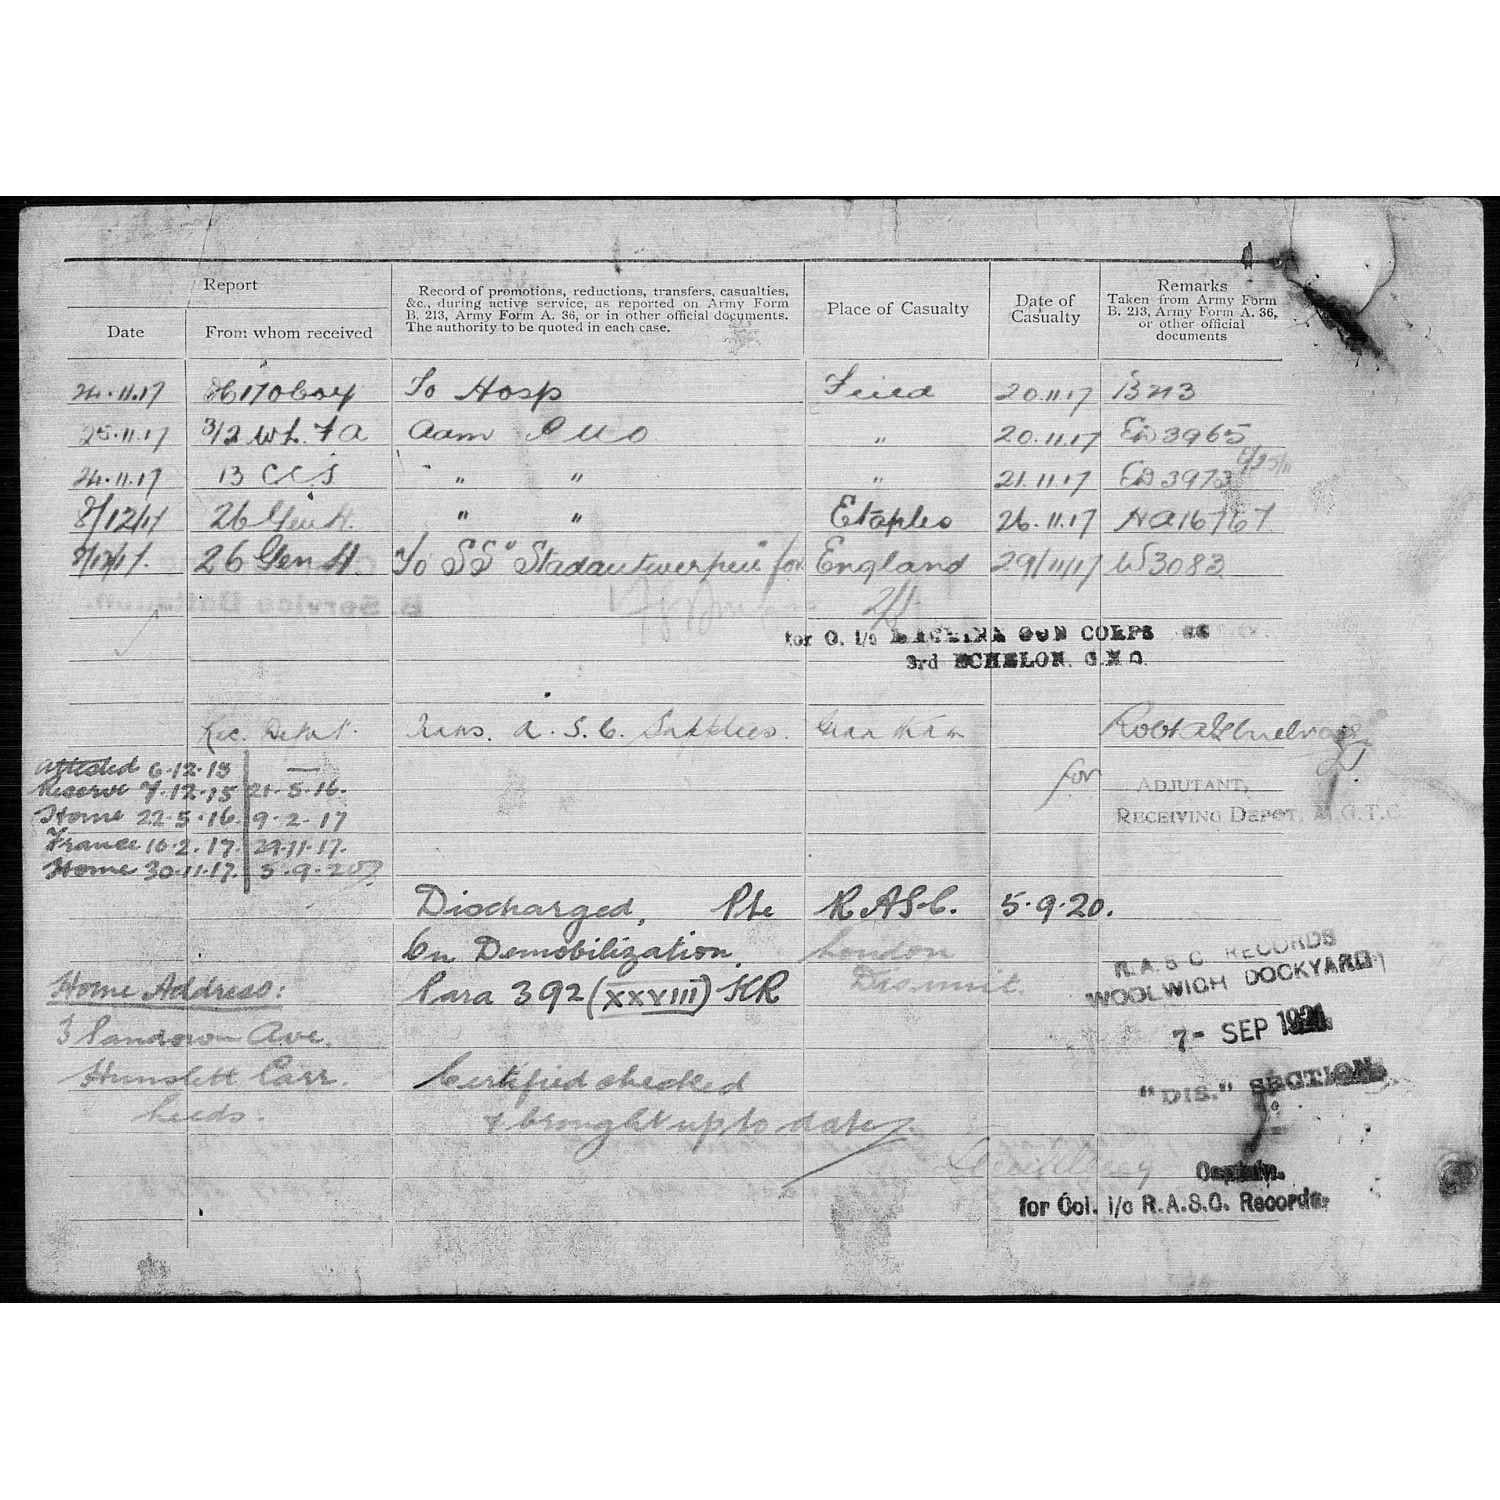 Report
Record of promotions, reductions, transfers, casualties,
&c., during active service, as reported on Army Form
B. 213, Army Form A. 36, or in other official documents.
The authority to be quoted in each case.
Place of Casualty
Date of
Casualty
Remarks
Taken from Army Form
B. 213, Army Form A. 36,
or other official
documents
Date
From whom received
24.11.17 To Hosp Field 20.11.17 B213
25.11.17 3/2 W.L. F A Adm P U O " 20.11.17 ED 3965
24.11.17 13 CCS " " " 21.11.17 ED 3973
8/12/17 26 Gen H. " " Etaples 26.11.17 HA 16767
8/12/17. 26 Gen H. To SS "Stadantwerpen" for England 29/11/17 W3083
for O. i/c MACHINE GUN CORPS
3rd ECHELON. G.H.Q.
Rec. Depot. Trans. A. S. C. Supplies. Grantham
for ADJUTANT,
RECEIVING DEPOT, M.G.T.C.
Attested 6.12.15 —
Reserve 7.12.15 21.5.16.
Home 22.5.16. 9.2.17
France 10.2.17. 29.11.17.
Home 30.11.17. 5.9.20
Discharged, Pte R.A.S.C. 5.9.20.
On Demobilization, London
Home Address: Para 392 (XXVIII) KR District.
3 Sandown Ave.
Hunslett Carr.
Leeds.
Certified checked
& brought up to date
R.A.S.C. RECORDS
WOOLWICH DOCKYARD
7- SEP 1921
"DIS." SECTION.
Captain.
for Col. i/c R.A.S.C. Records.